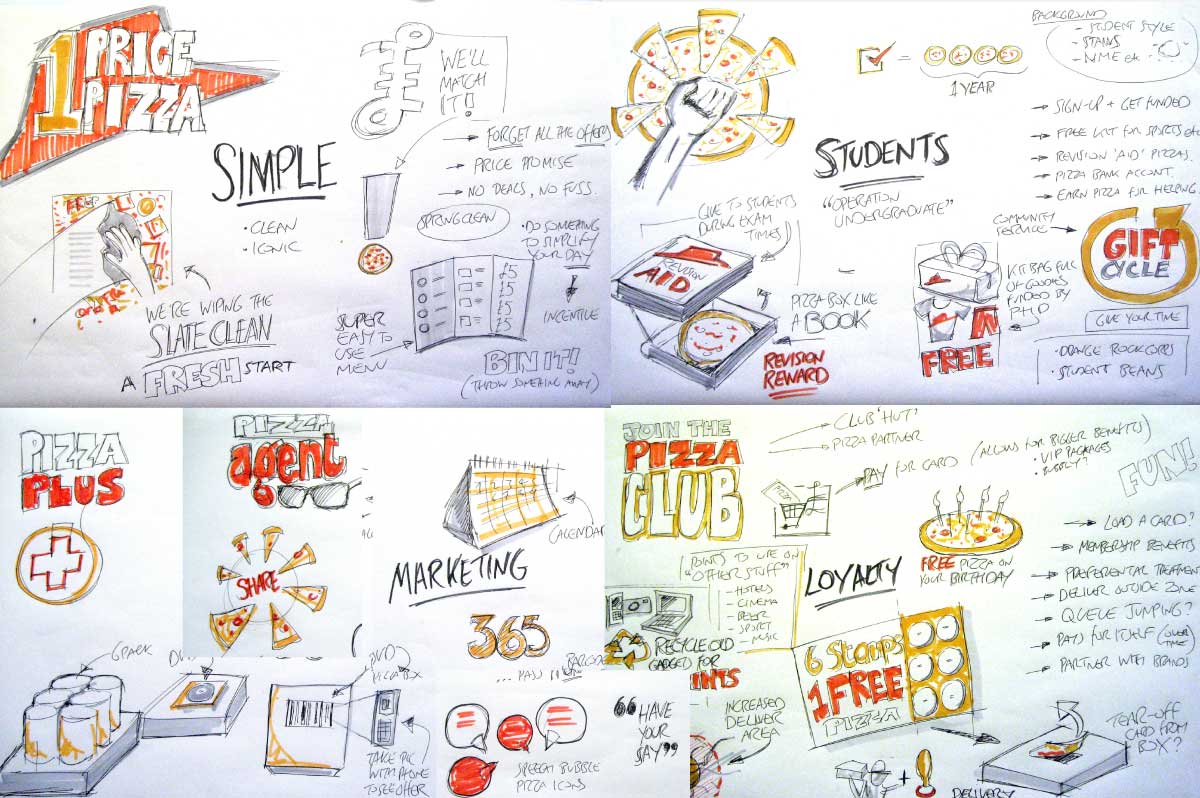 1 PRICE
PIZZA
SIMPLE
• CLEAN
• ICONIC
WE'LL
MATCH
IT!
FORGET ALL THE OFFERS
PRICE PROMISE
NO DEALS, NO FUSS.
SPRING CLEAN
• DO SOMETHING
TO SIMPLIFY
YOUR DAY
INCENTIVE
£5
£5
£5
£5
SUPER
EASY TO
USE
MENU
BIN IT!
(THROW SOMETHING AWAY)
WE'RE WIPING THE
SLATE CLEAN
A FRESH START
BACKGROUND
- STUDENT STYLE
- STAINS
- NME etc
= 
1 YEAR
SIGN-UP + GET FUNDED
FREE KIT FOR SPORTS etc
REVISION 'AID' PIZZAS.
PIZZA BANK ACCOUNT.
EARN PIZZA FOR HELPING
STUDENTS
"OPERATION
UNDERGRADUATE"
GIVE TO STUDENTS
DURING EXAM
TIMES
REVISION
AID
PIZZA BOX LIKE
A BOOK
REVISION
REWARD
COMMUNITY
SERVICE
GIFT
CYCLE
KIT BAG FULL
OF GOODIES
FUNDED BY
PHD
FREE
GIVE YOUR TIME
• ORANGE ROCKCORPS
• STUDENT BEANS
PIZZA
PLUS
PIZZA
agent
SHARE
CALENDAR
MARKETING
365
6 PACK
DVD
PIZZA BOX
BARCODE
... PASS IT ON
TAKE PIC
WITH PHONE
TO SEE OFFER
SPEECH BUBBLE
PIZZA ICONS
"HAVE
YOUR
SAY"
JOIN THE
PIZZA
CLUB
CLUB 'HUT'
PIZZA PARTNER
PAY FOR CARD (ALLOWS FOR BIGGER BENEFITS)
• VIP PACKAGES
FUN!
POINTS TO USE ON
"OTHER STUFF"
- HOTELS
- CINEMA
- BEER
- SPORT
- MUSIC
LOYALTY
FREE PIZZA ON
YOUR BIRTHDAY
LOAD A CARD?
MEMBERSHIP BENEFITS
PREFERENTIAL TREATMENT
DELIVER OUTSIDE ZONE
QUEUE JUMPING?
PAYS FOR ITSELF (OVER TIME)
PARTNER WITH BRANDS
RECYCLE OLD
GADGETS FOR
INTS
INCREASED
DELIVER
AREA
6 Stamps
1 FREE
PIZZA
TEAR-OFF
CARD FROM
BOX?
+
DELIVERY